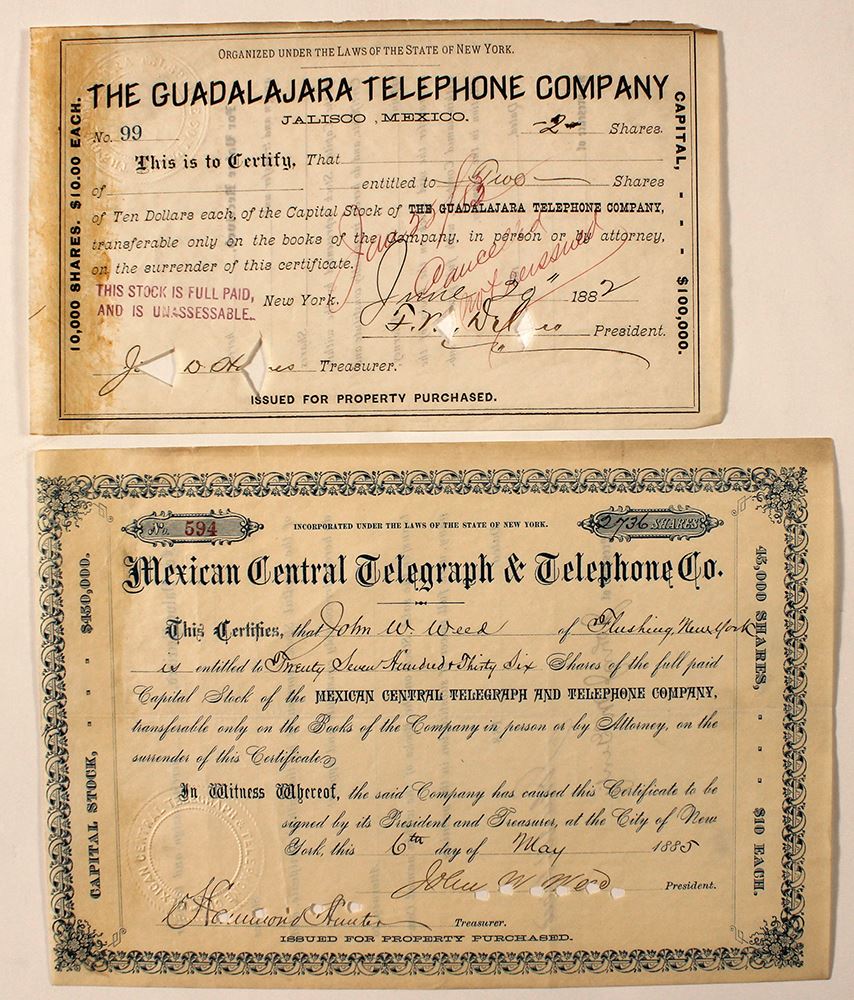 ORGANIZED UNDER THE LAWS OF THE STATE OF NEW YORK.
THE GUADALAJARA TELEPHONE COMPANY
JALISCO, MEXICO.
No. 99
-2- Shares.
This is to Certify, That
of entitled to Two Shares
of Ten Dollars each, of the Capital Stock of THE GUADALAJARA TELEPHONE COMPANY,
transferable only on the books of the Company, in person or by attorney,
on the surrender of this certificate.
THIS STOCK IS FULL PAID,
AND IS UNASSESSABLE.
New York. June 29" 1882
President.
Treasurer.
ISSUED FOR PROPERTY PURCHASED.
10,000 SHARES. $10.00 EACH.
CAPITAL, - - - $100,000.
Cancelled
not reissued
No. 594
INCORPORATED UNDER THE LAWS OF THE STATE OF NEW YORK.
2736 SHARES
Mexican Central Telegraph & Telephone Co.
This Certifies, that John W. Weed of Flushing, New York
is entitled to Twenty Seven Hundred & Thirty Six Shares of the full paid
Capital Stock of the MEXICAN CENTRAL TELEGRAPH AND TELEPHONE COMPANY,
transferable only on the Books of the Company in person or by Attorney, on the
surrender of this Certificate
In Witness Whereof, the said Company has caused this Certificate to be
signed by its President and Treasurer, at the City of New
York, this 6th day of May 1885
John W. Weed President.
Hammond Hunter Treasurer.
ISSUED FOR PROPERTY PURCHASED.
CAPITAL STOCK, - - - $450,000.
45,000 SHARES, - - - $10 EACH.